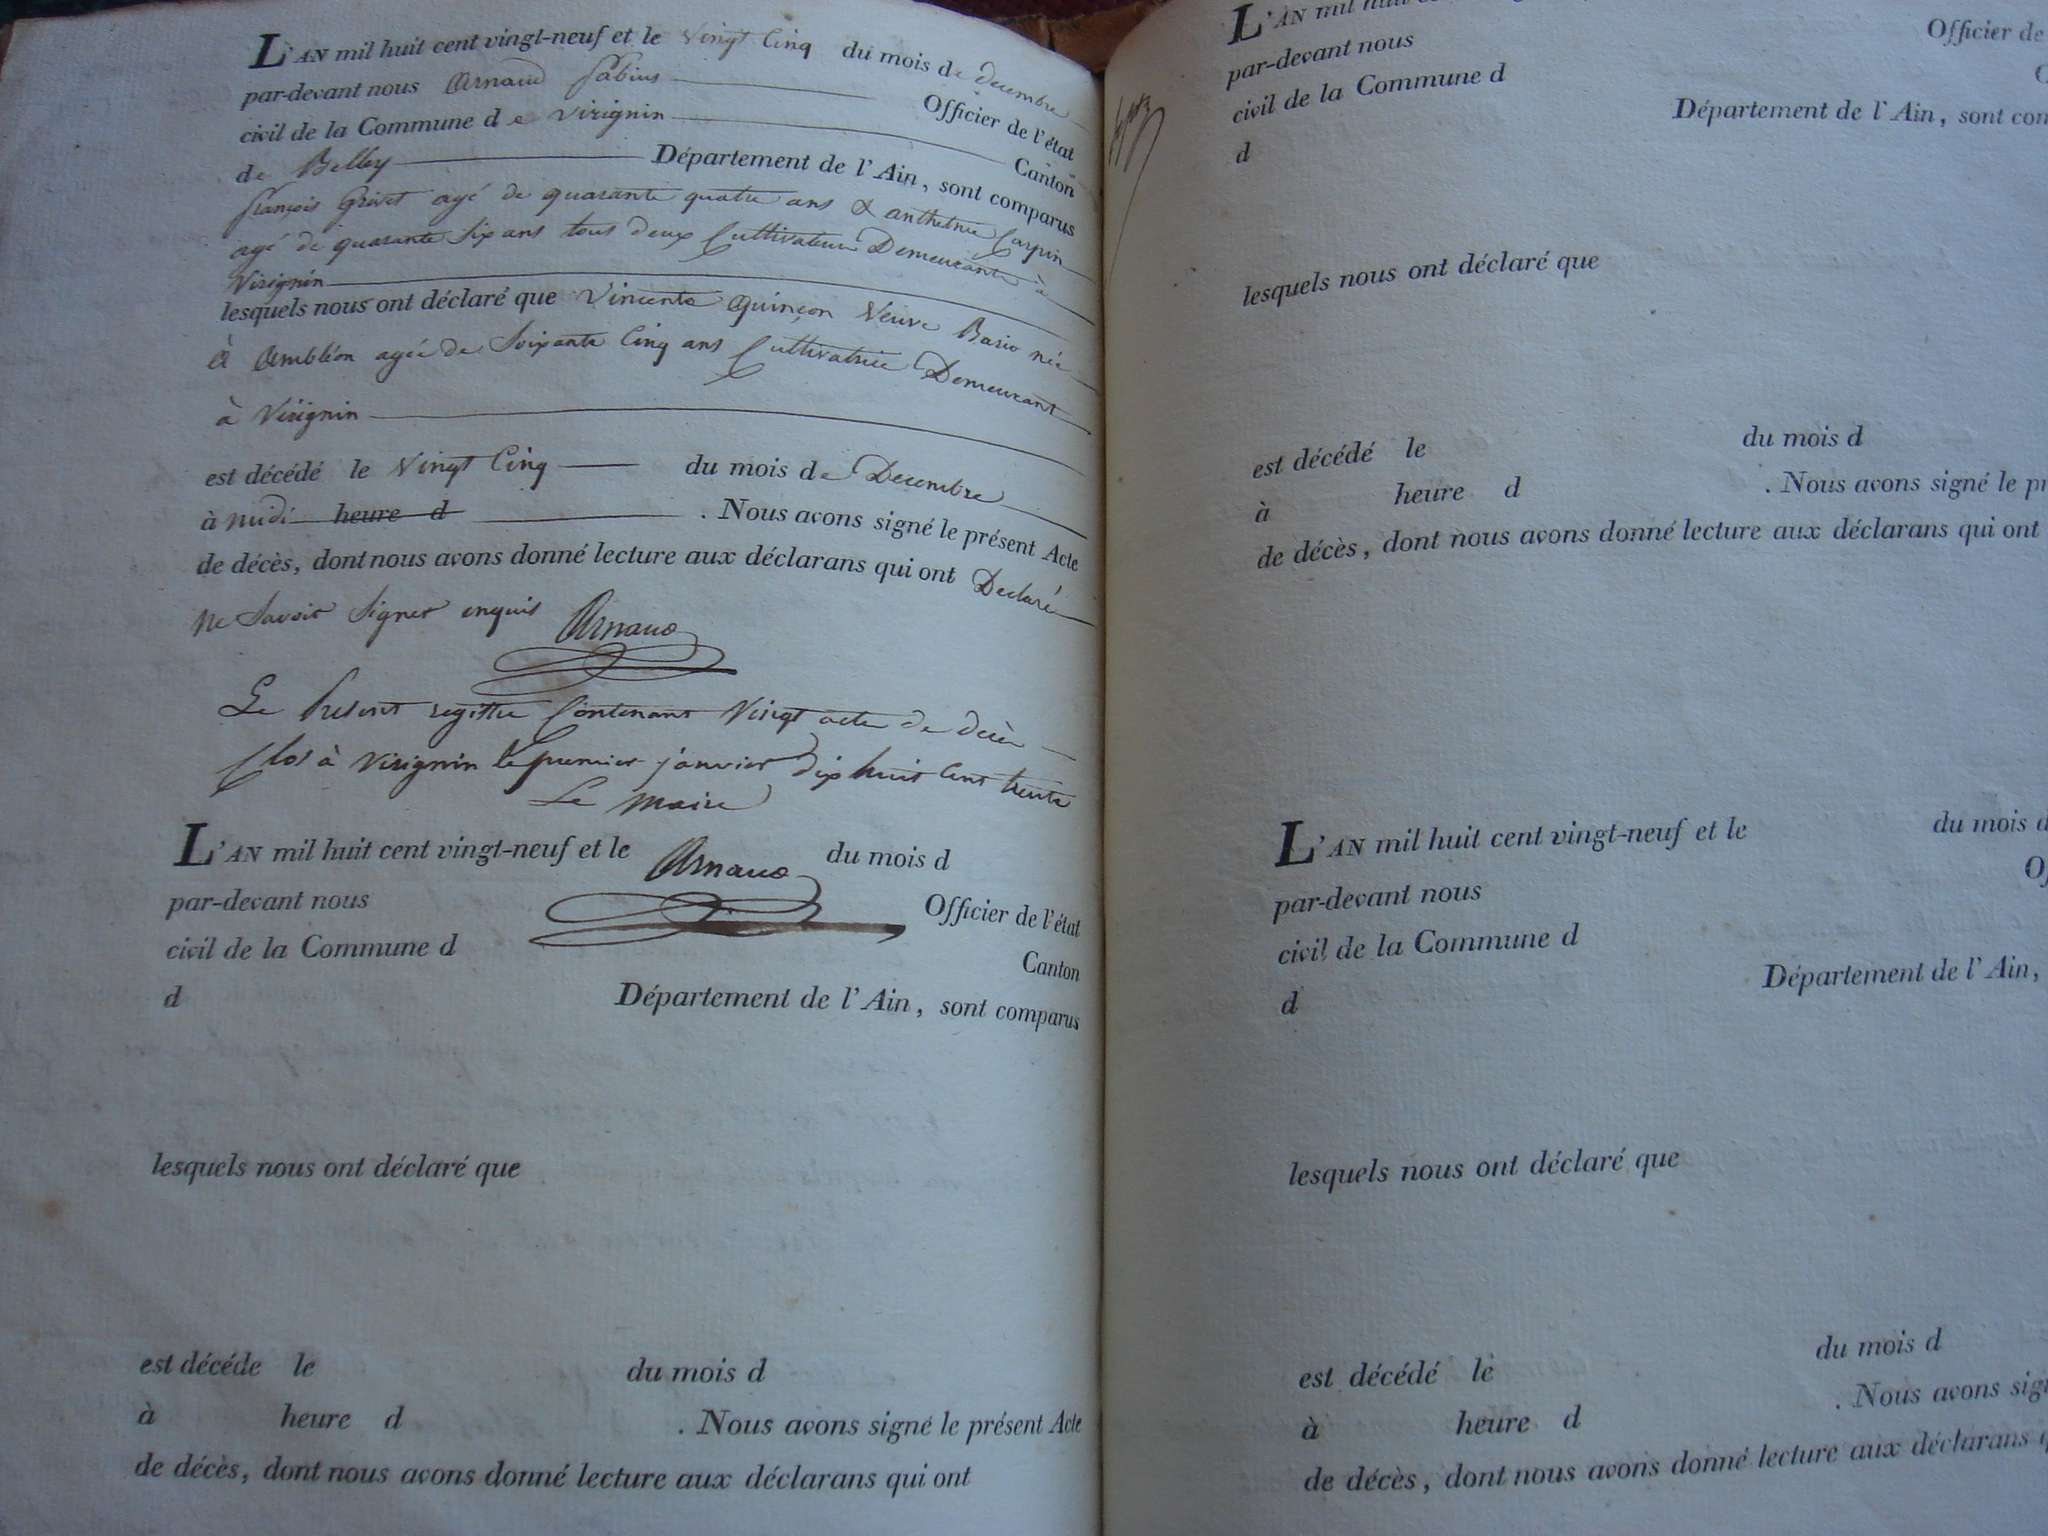 L'AN mil huit cent vingt-neuf et le vingt Cinq du mois de decembre
par-devant nous Arnaud fabius Officier de l'état
civil de la Commune de Virignin Canton
de Belley Département de l'Ain, sont comparus
françois Grivet agé de quarante quatre ans & anthelme Carrin
agé de quarante six ans tous deux Cultivateurs Demeurant à
Virignin
lesquels nous ont déclaré que Vincente Quinçon Veuve Bario née
à Ambléon agée de Soixante Cinq ans Cultivatrice Demeurant
à Virignin
est décédé le Vingt Cinq du mois de Decembre
à midi heure d . Nous avons signé le présent Acte
de décès, dont nous avons donné lecture aux déclarans qui ont Declaré
ne Savoir Signer enquis
Arnaud
Le Present registre Contenant Vingt acte de décès
Clos à Virignin le premier janvier dix huit Cent trente
Le Maire
L'AN mil huit cent vingt-neuf et le Arnaud du mois d
par-devant nous Officier de l'état
civil de la Commune d Canton
d Département de l'Ain, sont comparus
lesquels nous ont déclaré que
est décéde le du mois d
à heure d . Nous avons signé le présent Acte
de décès, dont nous avons donné lecture aux déclarans qui ont
L'AN mil huit
par-devant nous Officier de
civil de la Commune d
d Département de l'Ain, sont com
lesquels nous ont déclaré que
est décédé le du mois d
à heure d . Nous avons signé le pr
de décès, dont nous avons donné lecture aux déclarans qui ont
L'AN mil huit cent vingt-neuf et le du mois d
par-devant nous Of
civil de la Commune d
d Département de l'Ain,
lesquels nous ont déclaré que
est décédé le du mois d
à heure d . Nous avons sig
de décès, dont nous avons donné lecture aux déclarans q